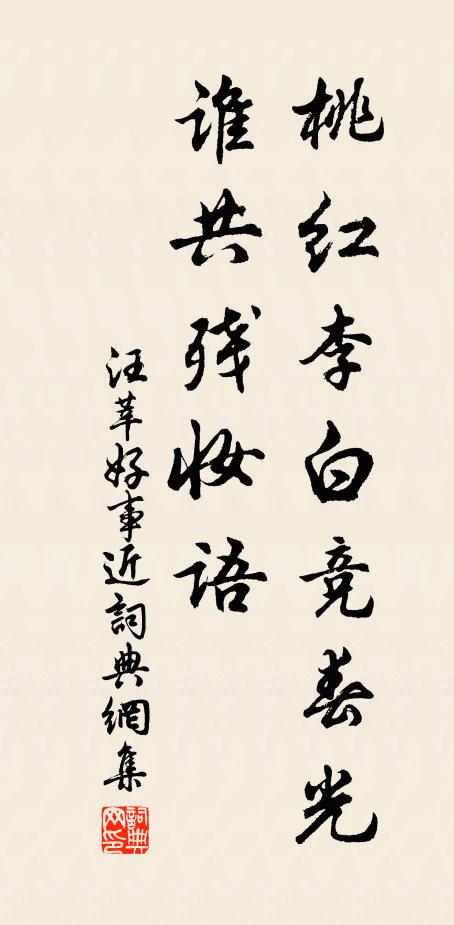 桃红李白竞春光
谁共残妆语
汪莘好事近詞典網集
詞典
网印